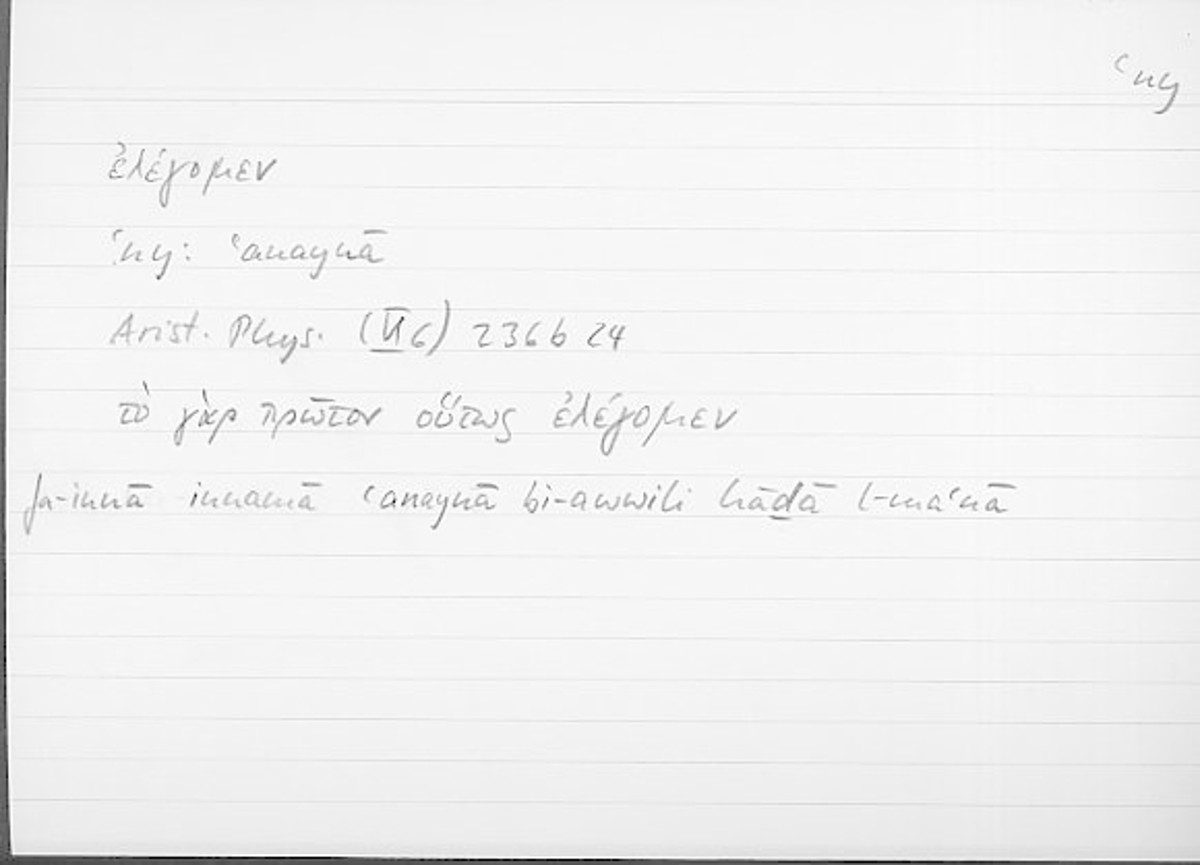 ʿny
ἐλέγομεν
ʿny: ʿanaynā
Arist. Phys. (VI 6) 236 b 24
τὸ γὰρ πρῶτον οὕτως ἐλέγομεν
fa-innā innamā ʿanaynā bi-awwili hāḏā l-maʿnā